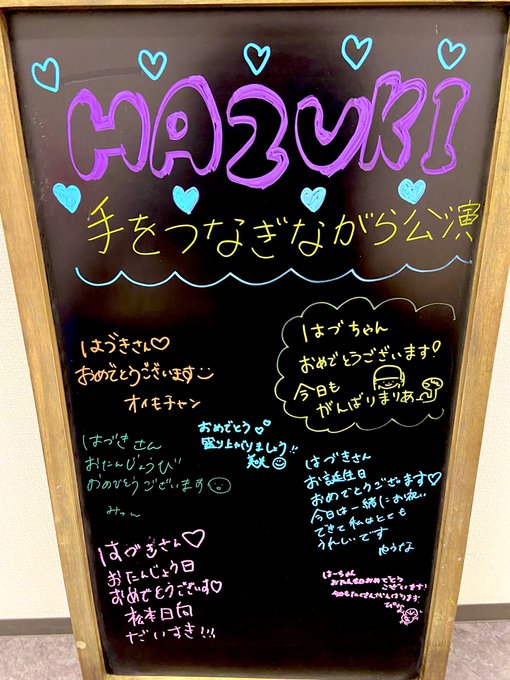 HAZUKI
手をつなぎながら公演
はづきさん♡
おめでとうございます
オイモチャン
はづちゃん
おめでとうございます!
今日も
がんばりまりあ
おめでとう♡
盛り上がりましょう!!
美咲
はづきさん
おたんじょうび
おめでとうございます
みっん
はづきさん
お誕生日
おめでとうございます♡
今日は一緒にお祝い
できて私はとても
うれしいです
ゆうな
はづきさん♡
おたんじょう日
おめでとうございます♡
松本日向
だいすき!!!
はーちゃん
お誕生日おめでとう
ございます!
がんばります